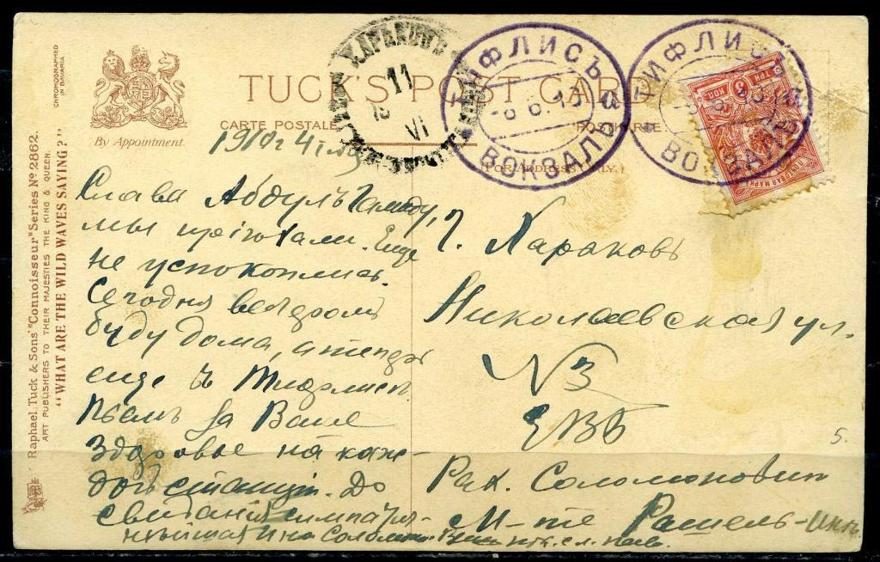 TUCK'S POST CARD
CARTE POSTALE
POSTKARTE
(FOR ADDRESS ONLY.)
By Appointment.
CHROMOGRAPHED
IN BAVARIA
Raphael Tuck & Sons' "Connoisseur" Series No 2862.
ART PUBLISHERS TO THEIR MAJESTIES THE KING & QUEEN.
"WHAT ARE THE WILD WAVES SAYING?"
ХАРЬКОВЪ
11
VI
ТИФЛИСЪ
-6 6.10
ВОКЗАЛЪ
ТИФЛИСЪ
-6 6.10
ВОКЗАЛЪ
3
КОП
1910 г. 4
Слава Абдулъ Гамиду,
мы пріѣхали. Еще
не успокоились.
Сегодня вечеромъ
буду дома, а теперь
еще въ Тифлисѣ.
Пьемъ за Ваше
здоровье на каж-
дой станціи. До
свиданія симпатич-
г. Харьковъ
Николаевская ул.
№3
ЕВБ
Рах. Соломонович
М-lle Рашель
5.